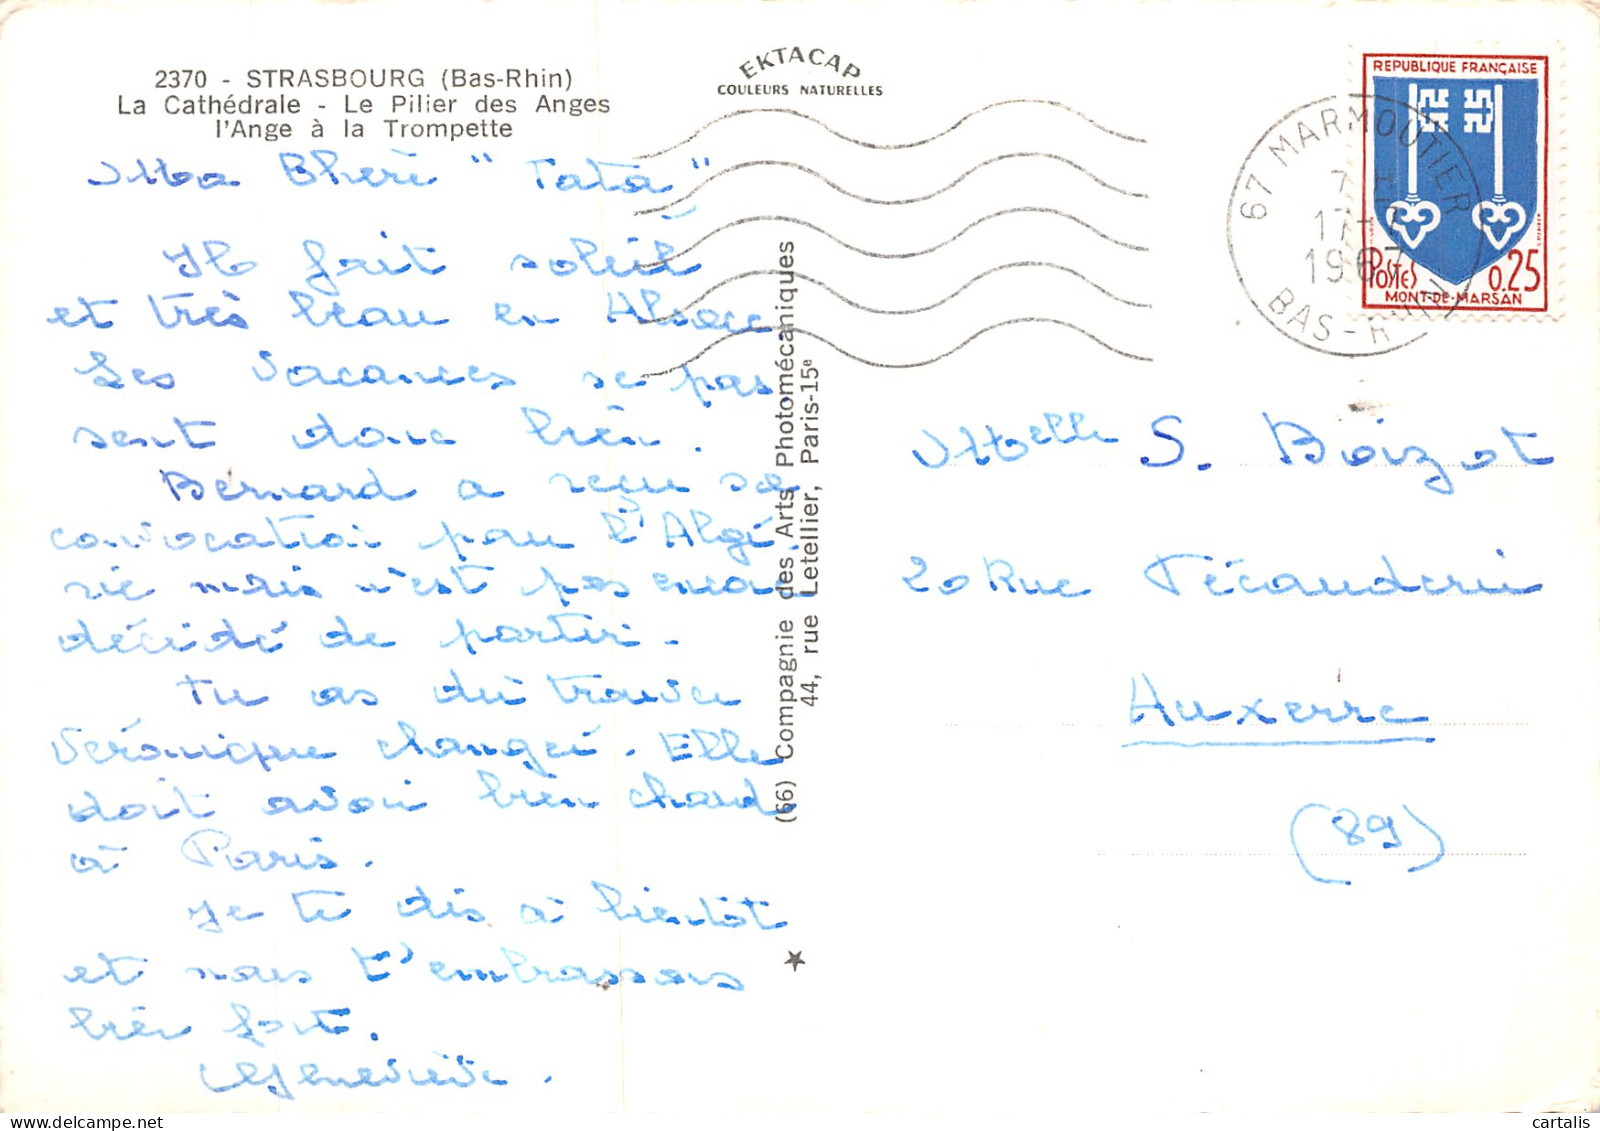 2370 - STRASBOURG (Bas-Rhin)
La Cathédrale - Le Pilier des Anges
l'Ange à la Trompette
EKTACAP
COULEURS NATURELLES
REPUBLIQUE FRANÇAISE
POSTES 0.25
MONT-DE-MARSAN
67 MARMOUTIER
17-7
1967
BAS-RHIN
Ma Chère "Tata"
Il fait soleil
et très beau en Alsace.
Les vacances se pas
sent donc bien.
Bernard a reçu sa
convocation pour l'Algé-
rie mais n'est pas encore
décidé de partir.
Tu as dû trouver
Véronique changée. Elle
doit avoir bien chaud
à Paris.
Je te dis à bientôt
et nous t'embrassons
bien fort.
Geneviève.
(66) Compagnie des Arts Photomécaniques
44, rue Letellier, Paris-15e
Melle S. Boizot
20 Rue Pécauderie
Auxerre
(89)
cartalis
delcampe.net